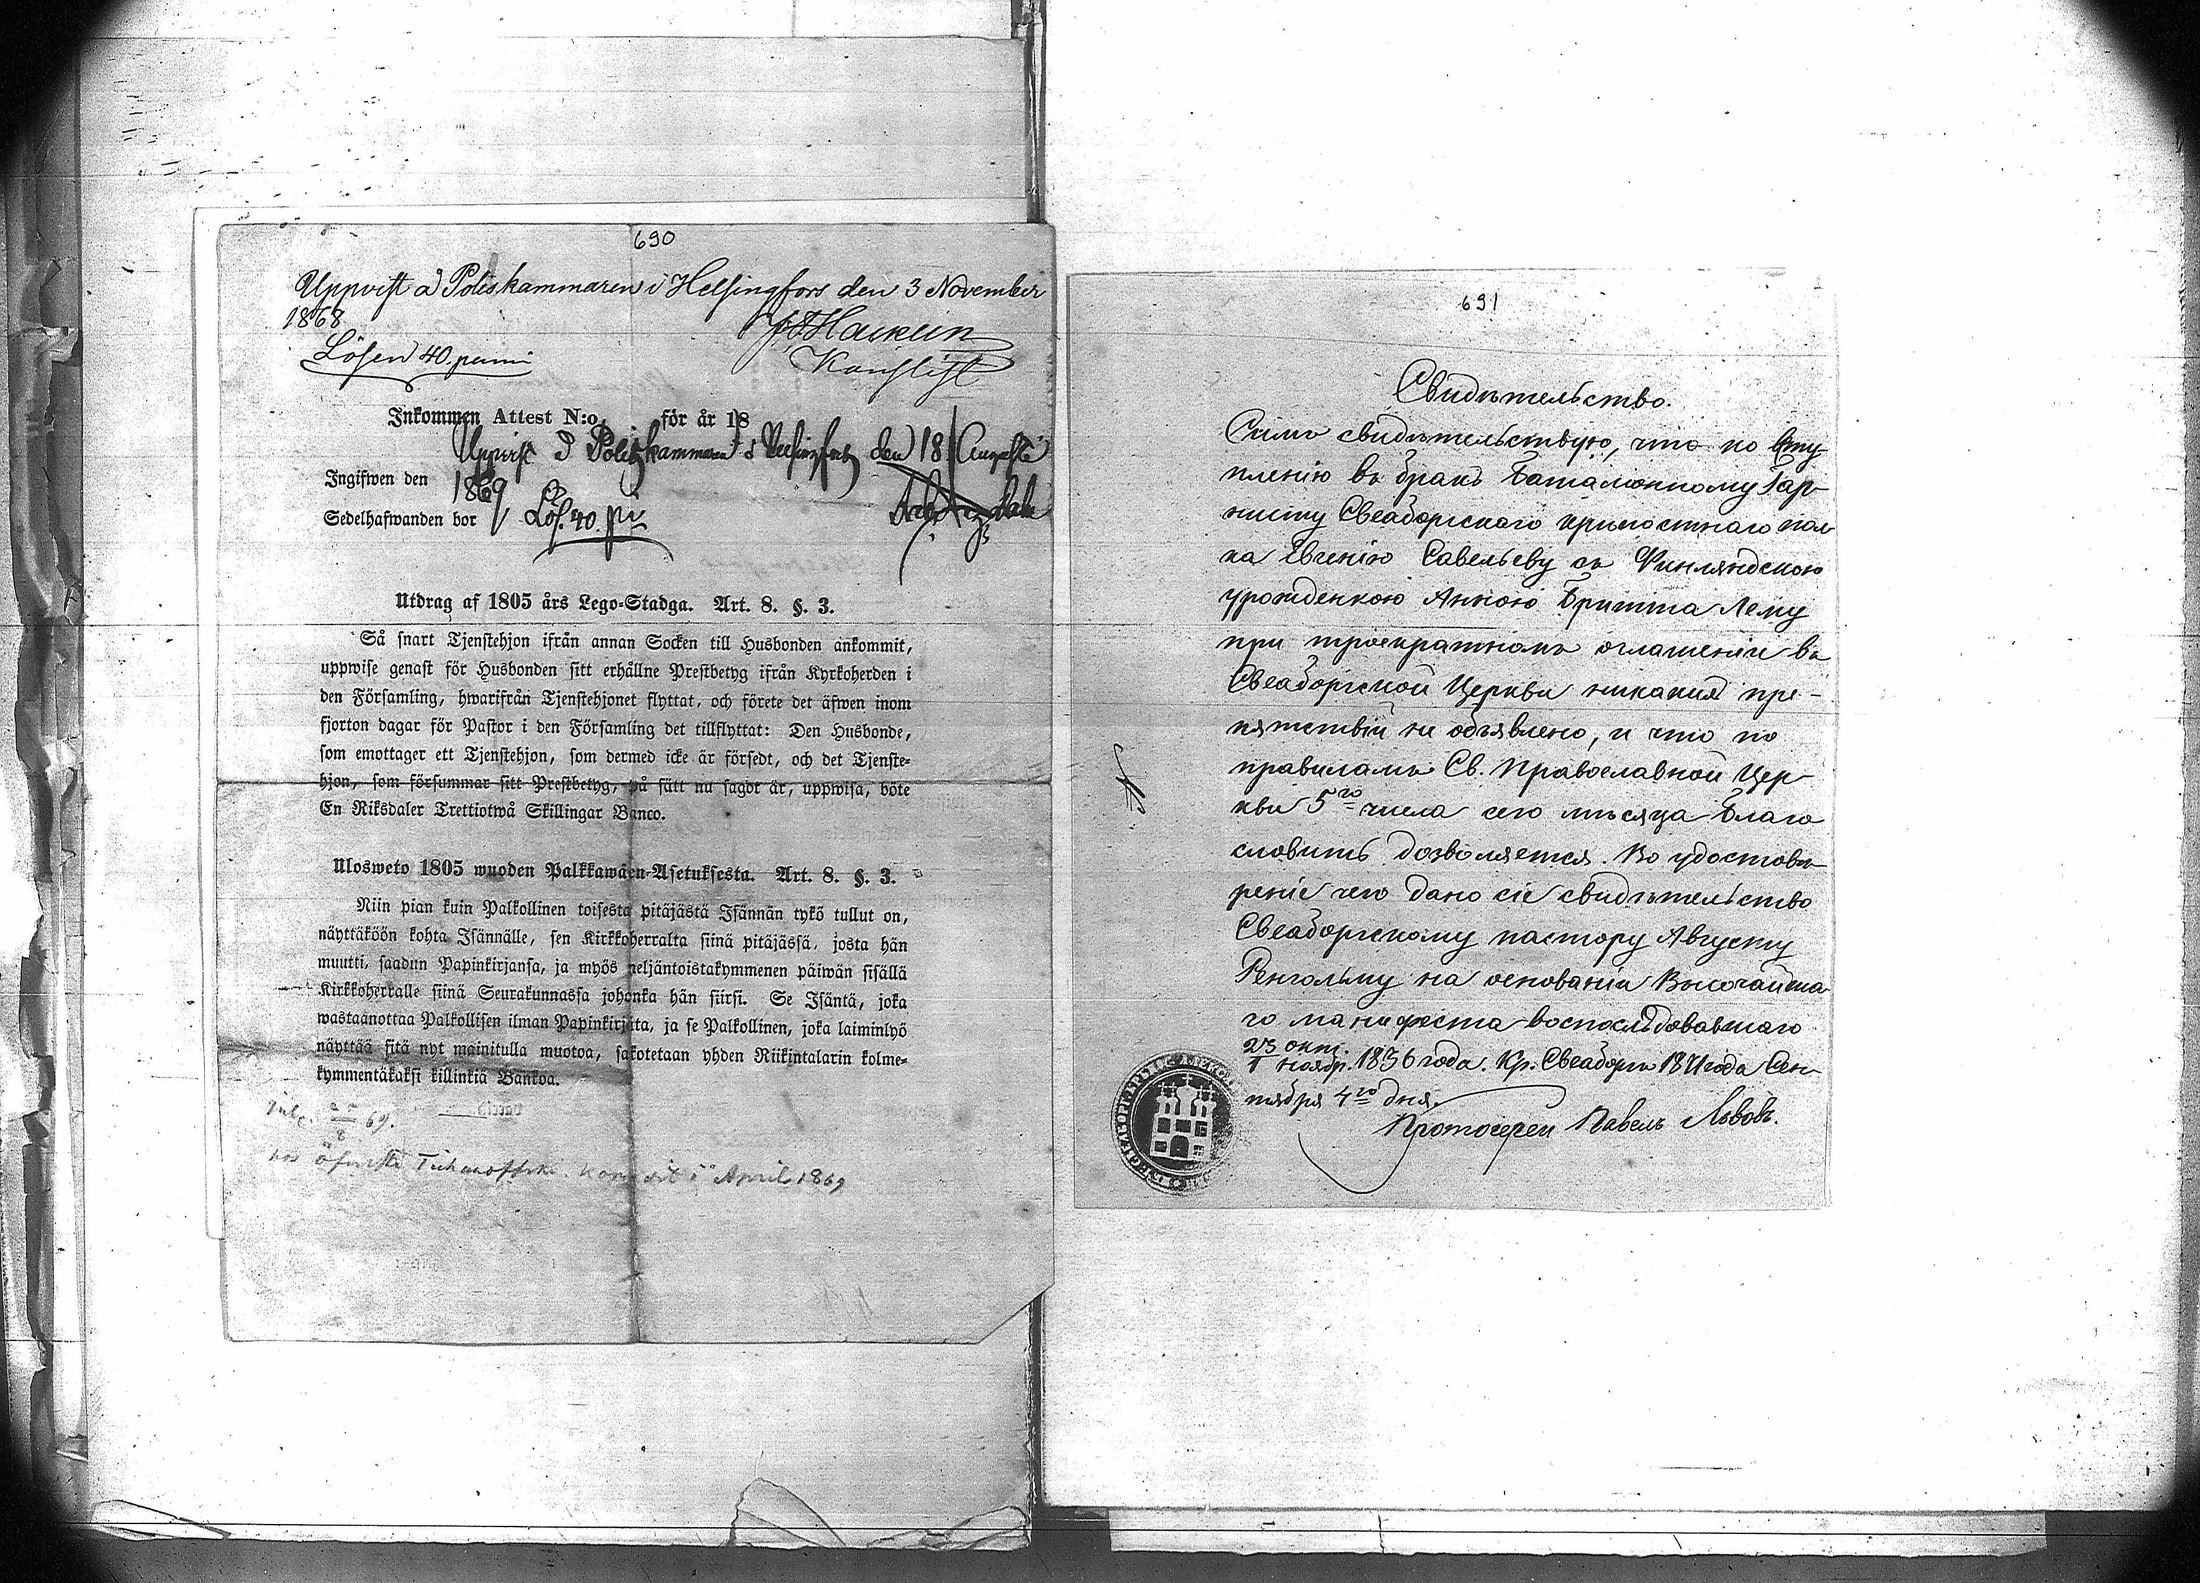 690
Uppvist å Poliskammaren i Helsingfors den 3 November
1868
Lösen 40 penni
Kanslist
Inkommen Attest N:o för år 18
Uppvist å Poliskammaren i Helsingfors den 18 Augusti
Ingifwen den 1869
Sedelhafwanden bor Lös. 40 pi
Utdrag af 1805 års Lego-Stadga. Art. 8. §. 3.
Så snart Tjenstehjon ifrån annan Socken till Husbonden ankommit,
uppwise genast för Husbonden sitt erhållne Prestbetyg ifrån Kyrkoherden i
den Församling, hwarifrån Tjenstehjonet flyttat, och förete det äfwen inom
fjorton dagar för Pastor i den Församling det tillflyttat: Den Husbonde,
som emottager ett Tjenstehjon, som dermed icke är försedt, och det Tjenste-
hjon, som försummar sitt Prestbetyg, på sätt nu sagdt är, uppwisa, böte
En Riksdaler Trettiotwå Skillingar Banco.
Ulosweto 1805 wuoden Palkkawäen-Asetuksesta. Art. 8. §. 3.
Niin pian kuin Palkollinen toisesta pitäjästä Isännän tykö tullut on,
näyttäköön kohta Isännälle, sen Kirkkoherralta siinä pitäjässä, josta hän
muutti, saadun Papinkirjansa, ja myös neljäntoistakymmenen päiwän sisällä
Kirkkoherralle siinä Seurakunnassa johonka hän siirsi. Se Isäntä, joka
wastaanottaa Palkollisen ilman Papinkirjata, ja se Palkollinen, joka laiminlyö
näyttää sitä nyt mainitulla muotoa, sakotetaan yhden Riikintalarin kolme-
kymmentäkaksi killinkiä Bankoa.
69.
hos öfverste i April 1869
691
Свидѣтельство.
Симъ свидѣтельствую, что по всту-
пленію въ бракъ Баталіонному Гар-
нисту Свеаборгскаго крѣпостнаго пол-
ка Евгенію Савельеву съ Финляндскою
урожденкою Анною Бритта Лему
при троекратномъ оглашеніи въ
Свеаборгской Церкви никакихъ пре-
пятствій не объявлено, и что по
правиламъ Св. Православной Цер-
кви 5го числа сего мѣсяца благо
словить дозволяется. Во удостовѣ-
реніе чего дано сіе свидѣтельство
Свеаборгскому пастору Августу
Ренгольму на основаніи Высочайша-
го манифеста воспослѣдовавшаго
23 окт.
1 ноябр. 1836 года. Кр. Свеаборгъ года Сен-
тября 4го дня.
Протоіерей Павелъ Львовъ.